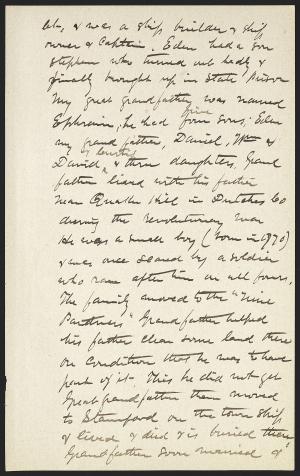 &c, & was a ship builder & ship
owner & Captain. Eden had a son
Stephen who turned out badly &
finally brought up in State Prison
My great grandfather was named
Ephraim; he had five sons; Eden
my grandfather, Daniel, Wm &
David, & three daughters. Grand
father lived with his father
near Quaker Hill in Dutchess Co
during the revolutionary war
He was a small boy (born in 1770)
& was once scared by a soldier
who ran after him on all fours.
The family moved to the "Nine
Partners" Grandfather helped
his father clear some land there
on condition that he was to have
part of it. This he did not get
Great grandfather then moved
to Stamford on the town ship
& lived & died & is buried there
Grandfather soon married &